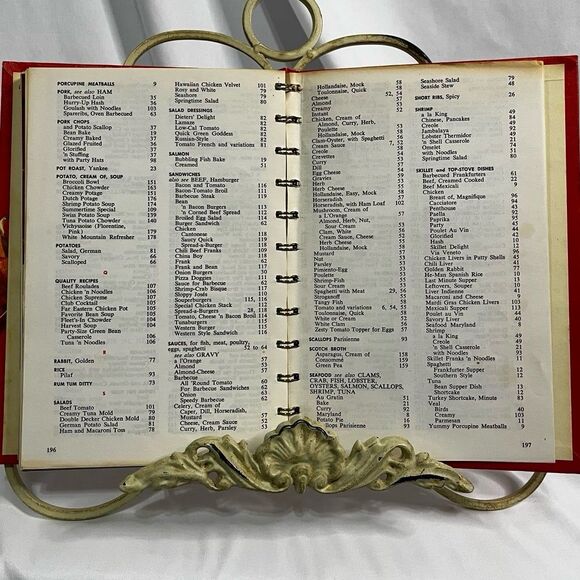 PORCUPINE MEATBALLS 9
PORK, see also HAM
Barbecued Loin 35
Hurry-Up Hash 36
Goulash with Noodles 103
Spareribs, Oven Barbecued 63
PORK CHOPS
and Potato Scallop 37
Bean Bake 19
Creamy Baked 27
Glazed Fruited 36
Glorified 37
'n Stuffing 37
with Party Hats 98
POT ROAST, Yankee 23
POTATO, CREAM OF, SOUP
Broccoli Bowl 151
Chicken Chowder 163
Creamy Potage 151
Dutch Potage 176
Shrimp Potato Soup 174
Summertime Special 109
Swiss Potato Soup 139
Tuna Potato Chowder 140
Vichyssoise (Florentine,
Pink) 179
White Mountain Refresher 178
POTATOES
Salad, German 81
Savory 66
Scalloped 66
Q
QUALITY RECIPES
Beef Rouladés
Chicken 'n Noodles 106
Chicken Supreme 107
Club Cocktail 105
Far Eastern Chicken Pot 107
Favorite Bean Soup 105
Fleet's-In Chowder 104
Harvest Soup 104
Party-Size Green Bean
Casserole 106
Tuna Noodle Casserole 106
R
RABBIT, Golden 77
RICE
Pilaf 93
RUM TUM DITTY 73
S
SALADS
Beef Tomato 101
Creamy Tuna Mold 79
Double Decker Chicken Mold 80
German Potato Salad 81
Ham and Macaroni Toss 78
196
Hawaiian Chicken Velvet 101
Rosy and White 79
Seashore 79
Springtime Salad 80
SALAD DRESSINGS
Dieters' Delight 82
Lamaze 82
Low-Cal Tomato 82
Quick Green Goddess 82
Russian-Style 82
Tomato French and variations 81
SALMON
Bubbling Fish Bake 19
Creamed 51
SANDWICHES
also see BEEF, Hamburger
Bacon and Tomato 116
Bacon-Tomato Broil 111
Barbecue Steak 119
Bean
'n Bacon Burgers 113
'n Corned Beef Spread 112
Broiled Egg Salad 114
Burger 114
Chicken
Cantonese 118
Saucy Quick 119
Spread-a-Burger 118
Chili Beef Franks 109
China Boy 118
Frank 62
Frank and Bean 117
Onion Burgers 30
Pizza Doggies 117
Sauce for Barbecue 62
Shrimp-Crab Bisque 112
Sloppy Joses 118
Souperburgers 115, 116
Special Chicken Stack 112
Spread-a-Burgers 28, 118
Tomato, Cheese 'n Bacon Broil 114
Tunaburgers 119
Western Burger 117
Western Style Sandwich 116
SAUCES, for fish, meat, poultry,
eggs, spaghetti 52 to 64
see also GRAVY
a l'Orange 57
Almond 53
Amandine 54
Barbecue
All 'Round Tomato 60
For Barbecue Sandwiches 62
Onion 62
Speedy Barbecue 62
Celery, Cream of
Caper, Dill, Horseradish,
Mustard 57
Cheese, Cream Sauce 52
Curry, Herb, Parsley 53
Hollandaise, Mock 58
Toulonnaise, Quick 58
Cheese 52, 54
Almond 53
Creamy 52
Instant 52
Chicken, Cream of
Almond, Curry, Herb,
Mustard 53
Poulette 58
Hollandaise, Mock 58
Clam-Oyster, with Spaghetti 56
Cream Sauce 7, 52
Creole 60
Crevettes 55
Curry 53
Dill 57
Egg Cheese 54
Gravies 59
Herb 53
Herb Cheese 55
Hollandaise, Easy, Mock 58
Horseradish 57
Horseradish, with Ham Loaf 102
Mushroom, Cream of
a L'Orange 57
Almond, Herb, Nut,
Sour Cream 53
Clam, White 56
Cream Sauce, Cheese 52
Herb Cheese 55
Hollandaise, Mock 58
Mustard 57
Nut 53
Parsley 53
Pimiento-Egg 53
Poulette 58
Shrimp-Fish 55
Sour Cream 53
Spaghetti with Meat 29, 56
Stroganoff 56
Tangy Fish 58
Tomato and variations 6, 54, 55
Toulonnaise, Quick 58
White or Cream 52
White Clam 56
Zesty Tomato Topper for Eggs 57
SCALLOPS Parisienne 93
SCOTCH BROTH
Asparagus, Cream of 158
Consommé 159
Green Pea 159
SEAFOOD see also CLAMS,
CRAB, FISH, LOBSTER,
OYSTERS, SALMON, SCALLOPS,
SHRIMP, TUNA
Au Gratin 51
Bake 21
Curry 92
Maryland 8
Potato Pie 16
Scallops Parisienne 93
Seashore Salad 79
Seaside Stew 48
SHORT RIBS, Spicy 26
SHRIMP 49
a la King 49
Chinese, Pancakes 84
Creole 49
Jambalaya 92
Lobster Thermidor 49
'n Shell Casserole 21
Omelet 74
with Noodles 51
Springtime Salad 80
SKILLET and TOP-STOVE DISHES
Barbecued Frankfurters 61
Beef, Creamed Cooked 22
Beef Mexicali 9
Chicken
Breast of, Magnifique 96
Cacciatore 94
Penthouse 43
Paella 92
Paprika 94
Party 45
Poulet Au Vin 44
Glorified 37
Hash 10
Skillet Delight 12
Via Veneto 41
Chicken Livers in Patty Shells 45
Chili Liver 41
Golden Rabbit 77
He-Man Spanish Rice 10
Last Minute Supper 13
Leftovers, Souper 10
Liver Indienne 41
Macaroni and Cheese 9
Mardi Gras Chicken Livers 103
Mexicali Supper 113
Poulet Au Vin 44
Savory Liver 40
Seafood Maryland 8
Shrimp
a la King 49
Creole 49
'n Shell Casserole 21
with Noodles 93
Skillet Franks 'n Noodles 11
Spaghetti
Frankfurter Supper 12
Southern Style 12
Tuna
Bean Supper Dish 13
Shortcake 12
Turkey Shortcake, Minute 83
Veal
Birds 40
Creamy 103
Parmesan 11
Yummy Porcupine Meatballs 9
197